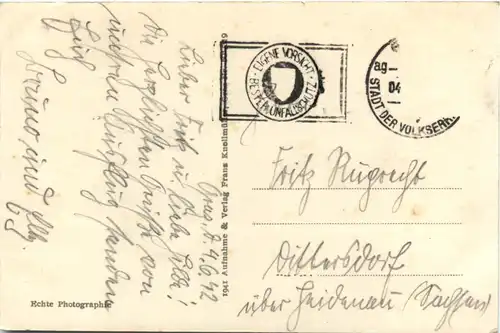 Graz, d. 4.6.42
Lieber Fritz u. liebe Elli!
Die herzlichsten Grüße von
unserem Ausflug senden
Euch
Bruno und Elly
Echte Photographie
1941 Aufnahme & Verlag Franz Knollmü
EIGENE VORSICHT
BESTER UNFALLSCHUTZ
04
STADT DER VOLKSERH
Fritz Ruprecht
Dittersdorf
über Heidenau (Sachsen)